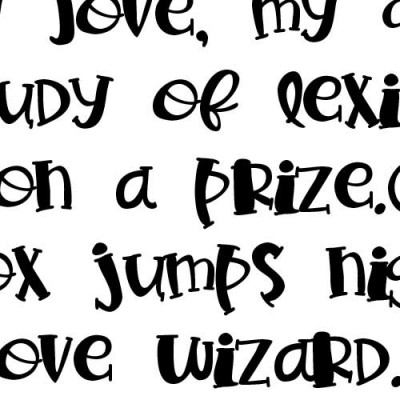 Jove, my
udy of lexi
on a prize.
ox jumps nig
ove wizard.